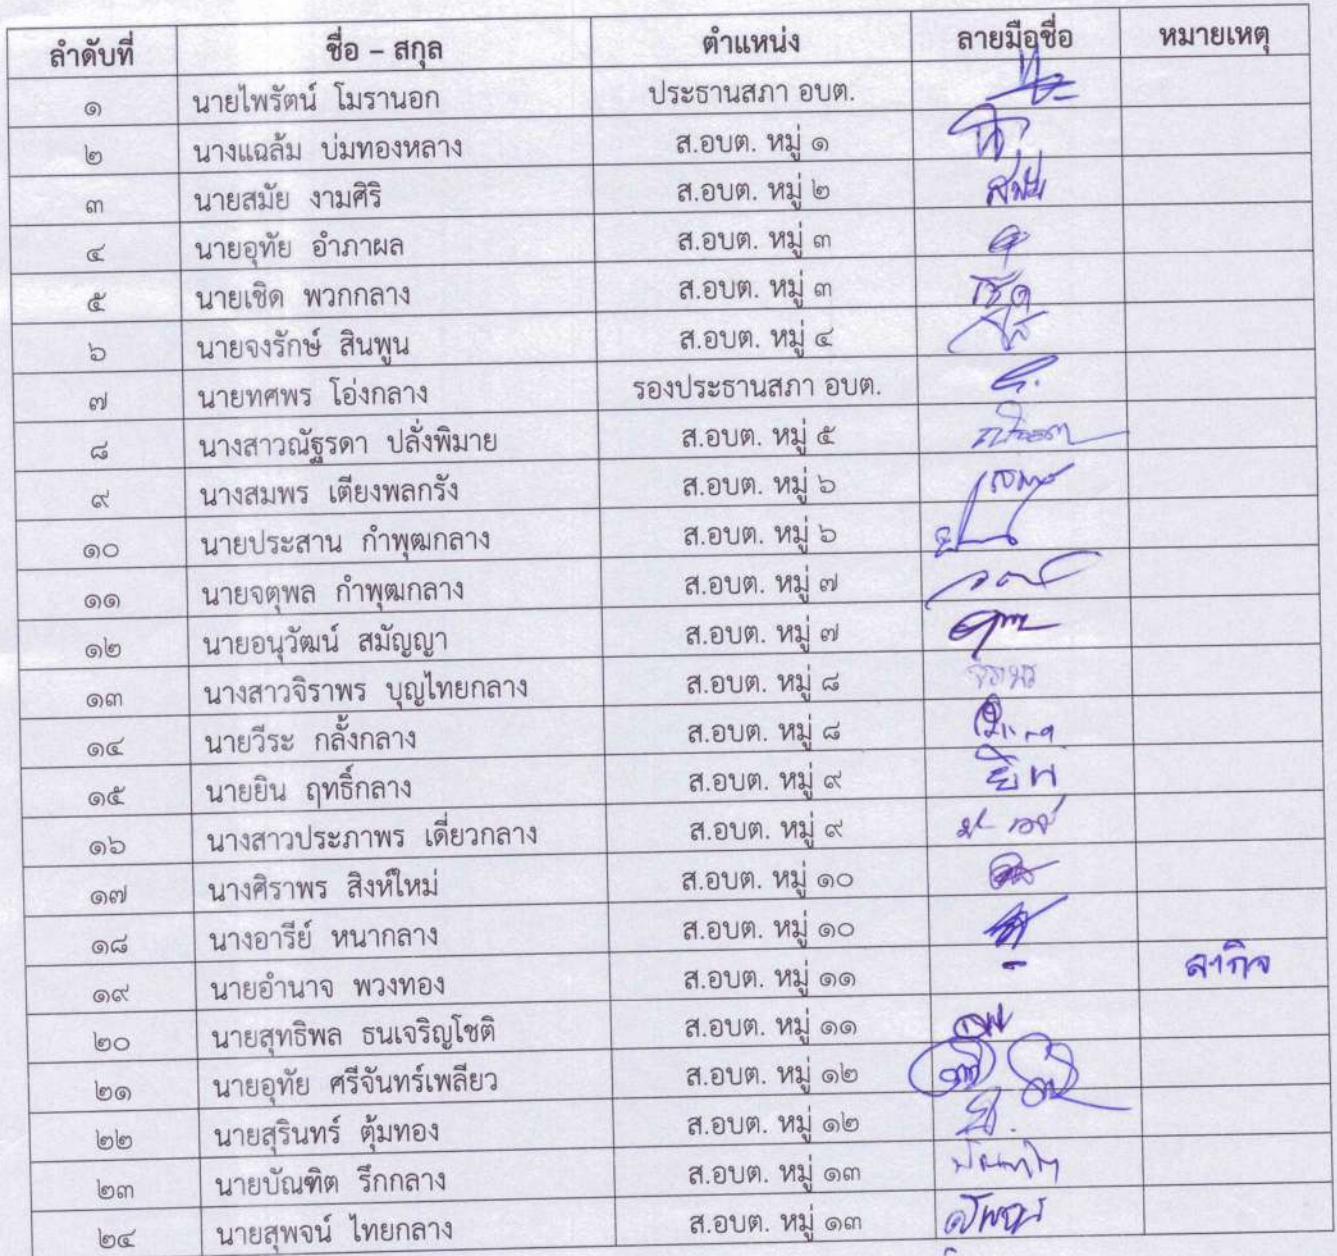 ลำดับที่ ชื่อ – สกุล ตำแหน่ง ลายมือชื่อ หมายเหตุ
๑ นายไพรัตน์ โมรานอก ประธานสภา อบต.
๒ นางแฉล้ม บ่มทองหลาง ส.อบต. หมู่ ๑
๓ นายสมัย งามศิริ ส.อบต. หมู่ ๒ สมัย
๔ นายอุทัย อำภาผล ส.อบต. หมู่ ๓
๕ นายเชิด พวกกลาง ส.อบต. หมู่ ๓ เชิด
๖ นายจงรักษ์ สินพูน ส.อบต. หมู่ ๔
๗ นายทศพร โอ่งกลาง รองประธานสภา อบต.
๘ นางสาวณัฐรดา ปลั่งพิมาย ส.อบต. หมู่ ๕
๙ นางสมพร เตียงพลกรัง ส.อบต. หมู่ ๖
๑๐ นายประสาน กำพุฒกลาง ส.อบต. หมู่ ๖
๑๑ นายจตุพล กำพุฒกลาง ส.อบต. หมู่ ๗
๑๒ นายอนุวัฒน์ สมัญญา ส.อบต. หมู่ ๗
๑๓ นางสาวจิราพร บุญไทยกลาง ส.อบต. หมู่ ๘
๑๔ นายวีระ กลั้งกลาง ส.อบต. หมู่ ๘
๑๕ นายยิน ฤทธิ์กลาง ส.อบต. หมู่ ๙ ยิน
๑๖ นางสาวประภาพร เดี่ยวกลาง ส.อบต. หมู่ ๙
๑๗ นางศิราพร สิงห์ใหม่ ส.อบต. หมู่ ๑๐
๑๘ นางอารีย์ หนากลาง ส.อบต. หมู่ ๑๐
๑๙ นายอำนาจ พวงทอง ส.อบต. หมู่ ๑๑ - ลากิจ
๒๐ นายสุทธิพล ธนเจริญโชติ ส.อบต. หมู่ ๑๑
๒๑ นายอุทัย ศรีจันทร์เพลียว ส.อบต. หมู่ ๑๒
๒๒ นายสุรินทร์ ตุ้มทอง ส.อบต. หมู่ ๑๒
๒๓ นายบัณฑิต รึกกลาง ส.อบต. หมู่ ๑๓
๒๔ นายสุพจน์ ไทยกลาง ส.อบต. หมู่ ๑๓